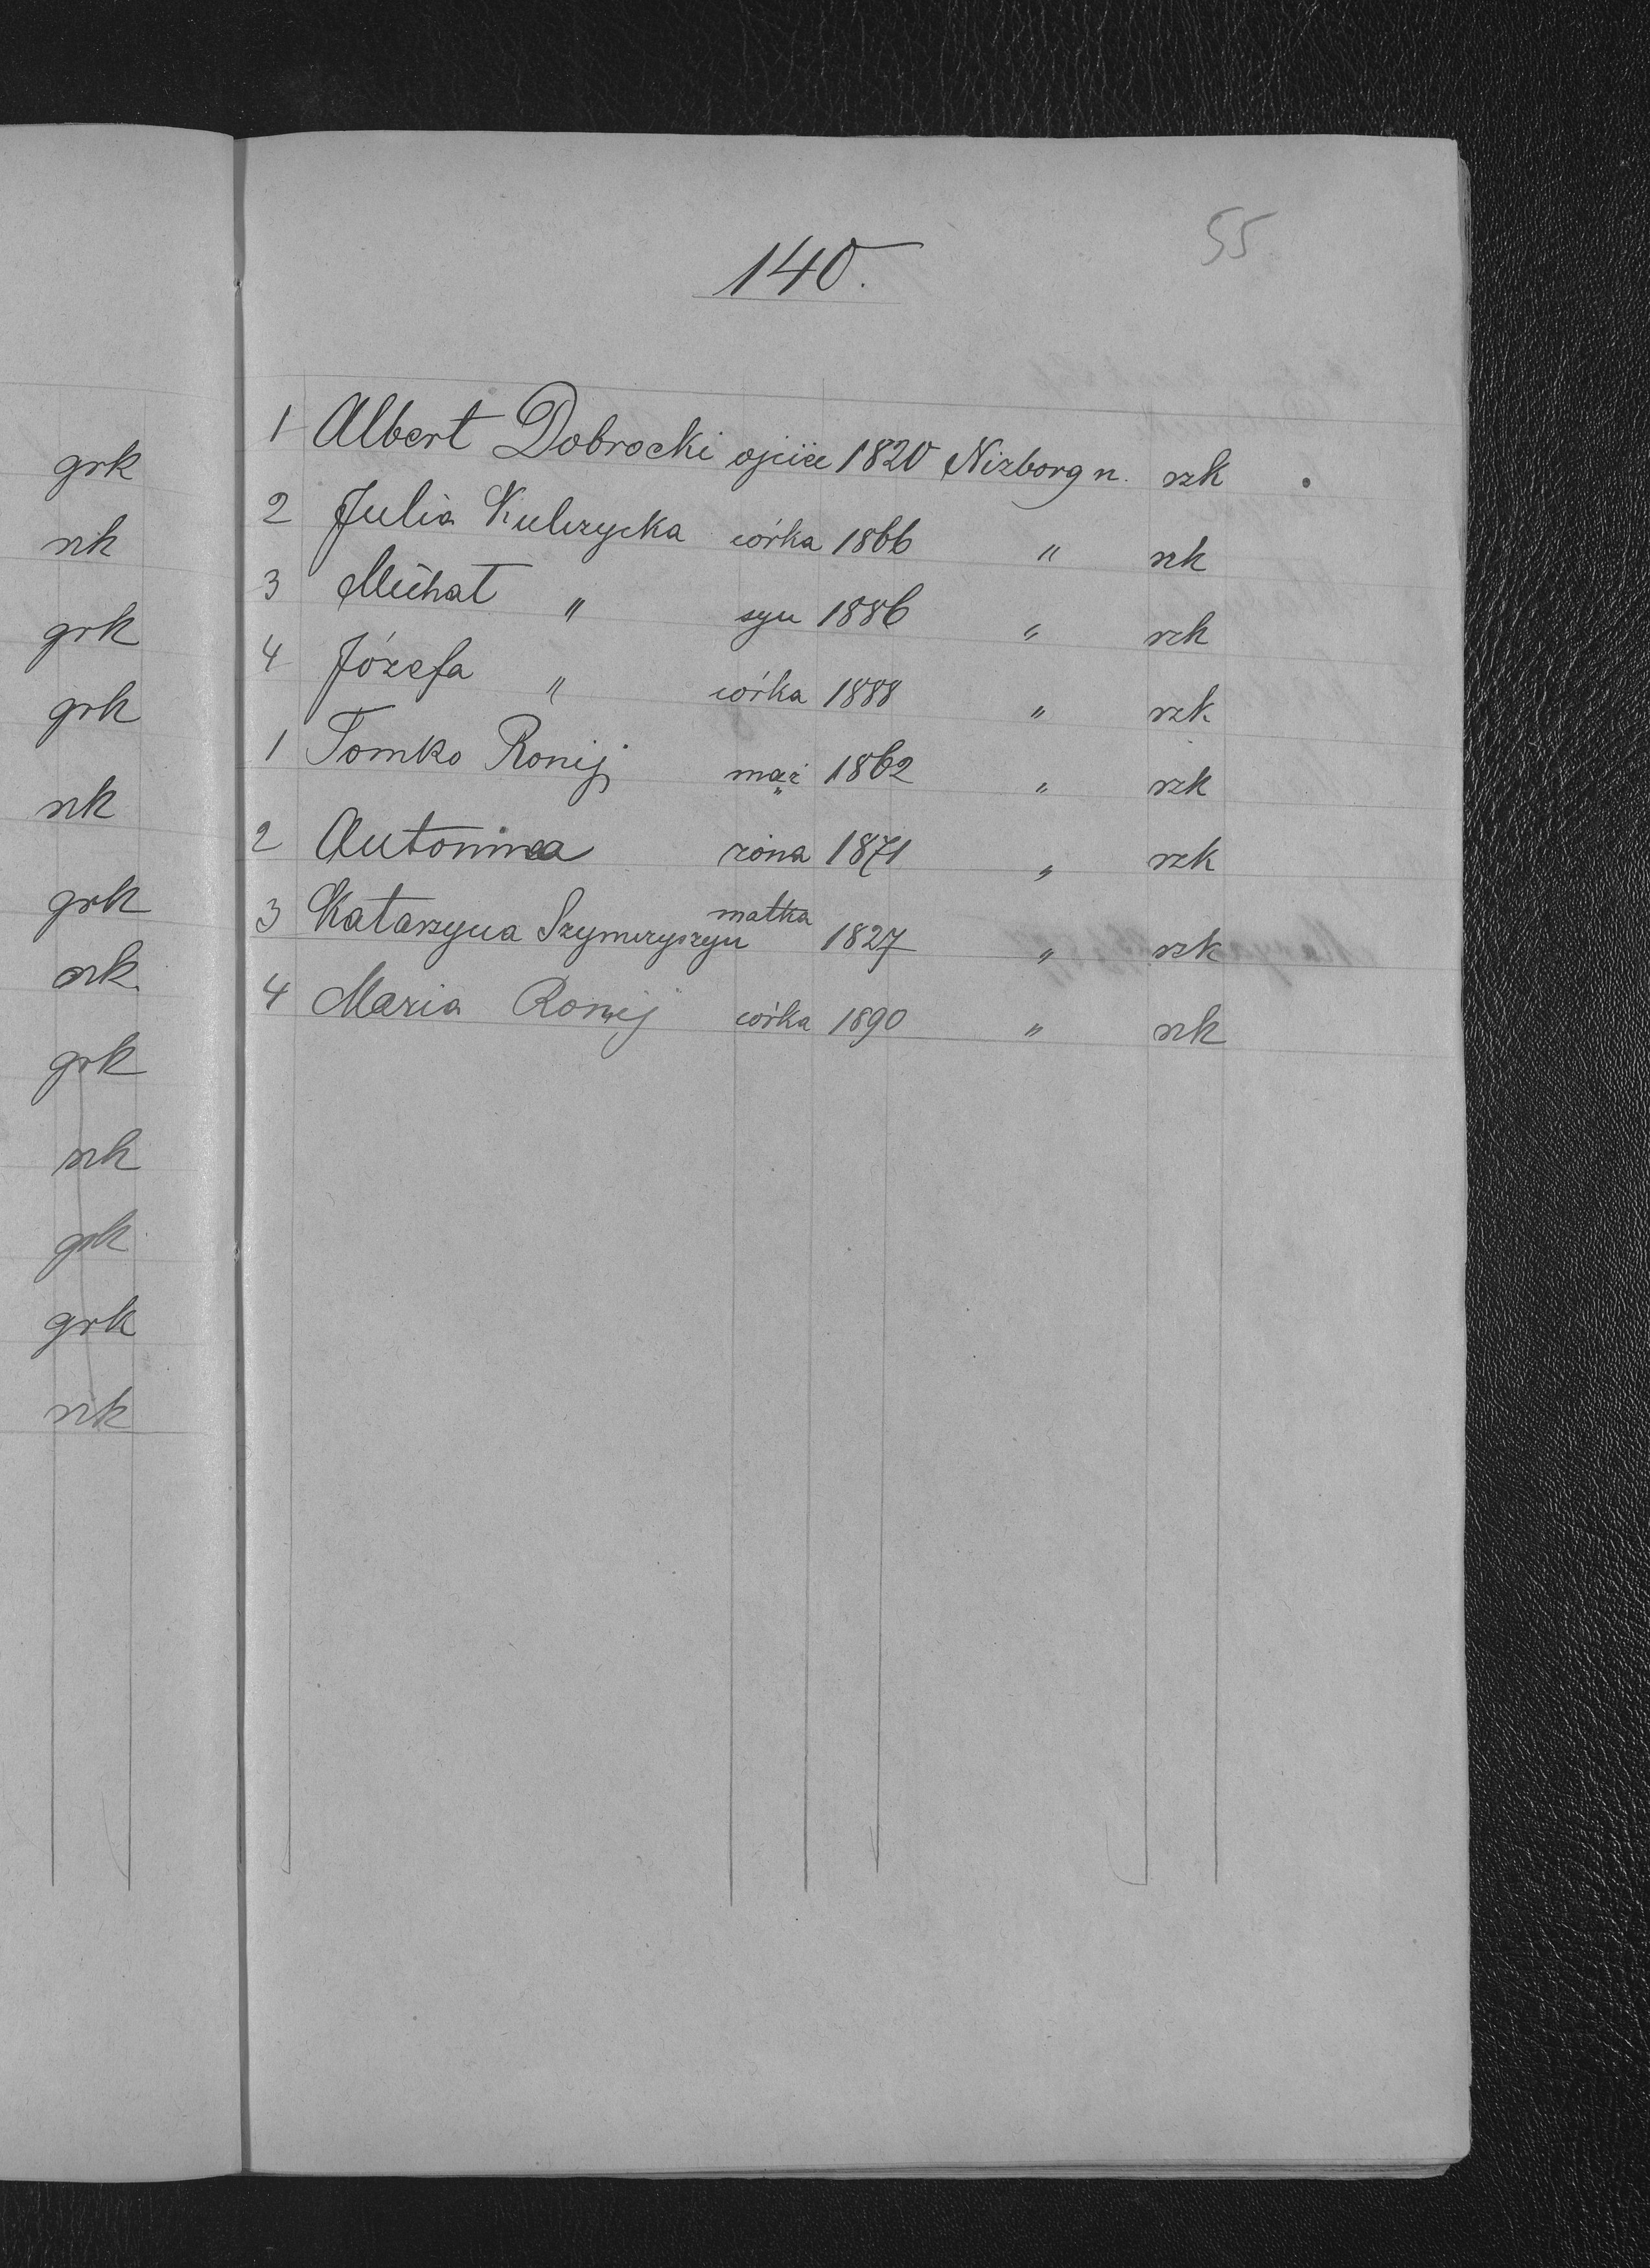 55
140.
1 Albert Dobrocki ojciec 1820 Nizborg n. rzk
2 Julia Kulczycka córka 1866 " rzk
3 Michał " syn 1886 " rzk
4 Józefa " córka 1888 " rzk
1 Tomko Ronij mąż 1862 " rzk
2 Antonina żona 1871 " rzk
3 Katarzyna Szymczyszyn matka 1827 " rzk
4 Maria Ronij córka 1890 " rzk
grk
rzk
grk
grk
rzk
grk
rzk
grk
rzk
grk
grk
rzk